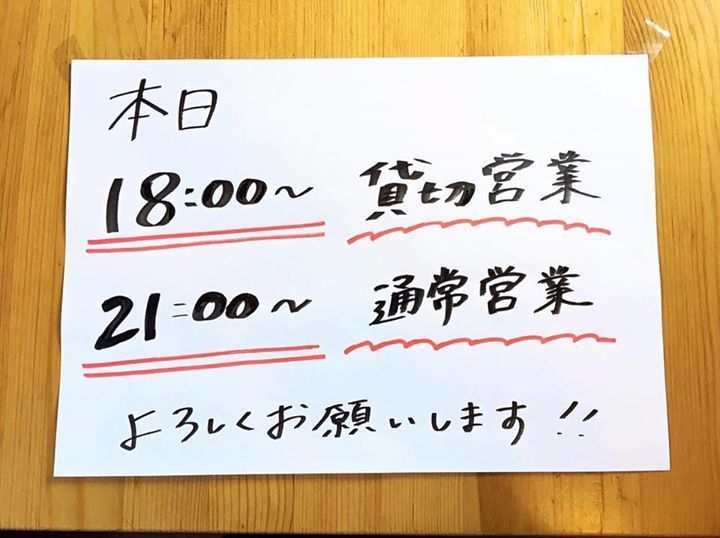 本日
18:00~ 貸切営業
21:00~ 通常営業
よろしくお願いします!!